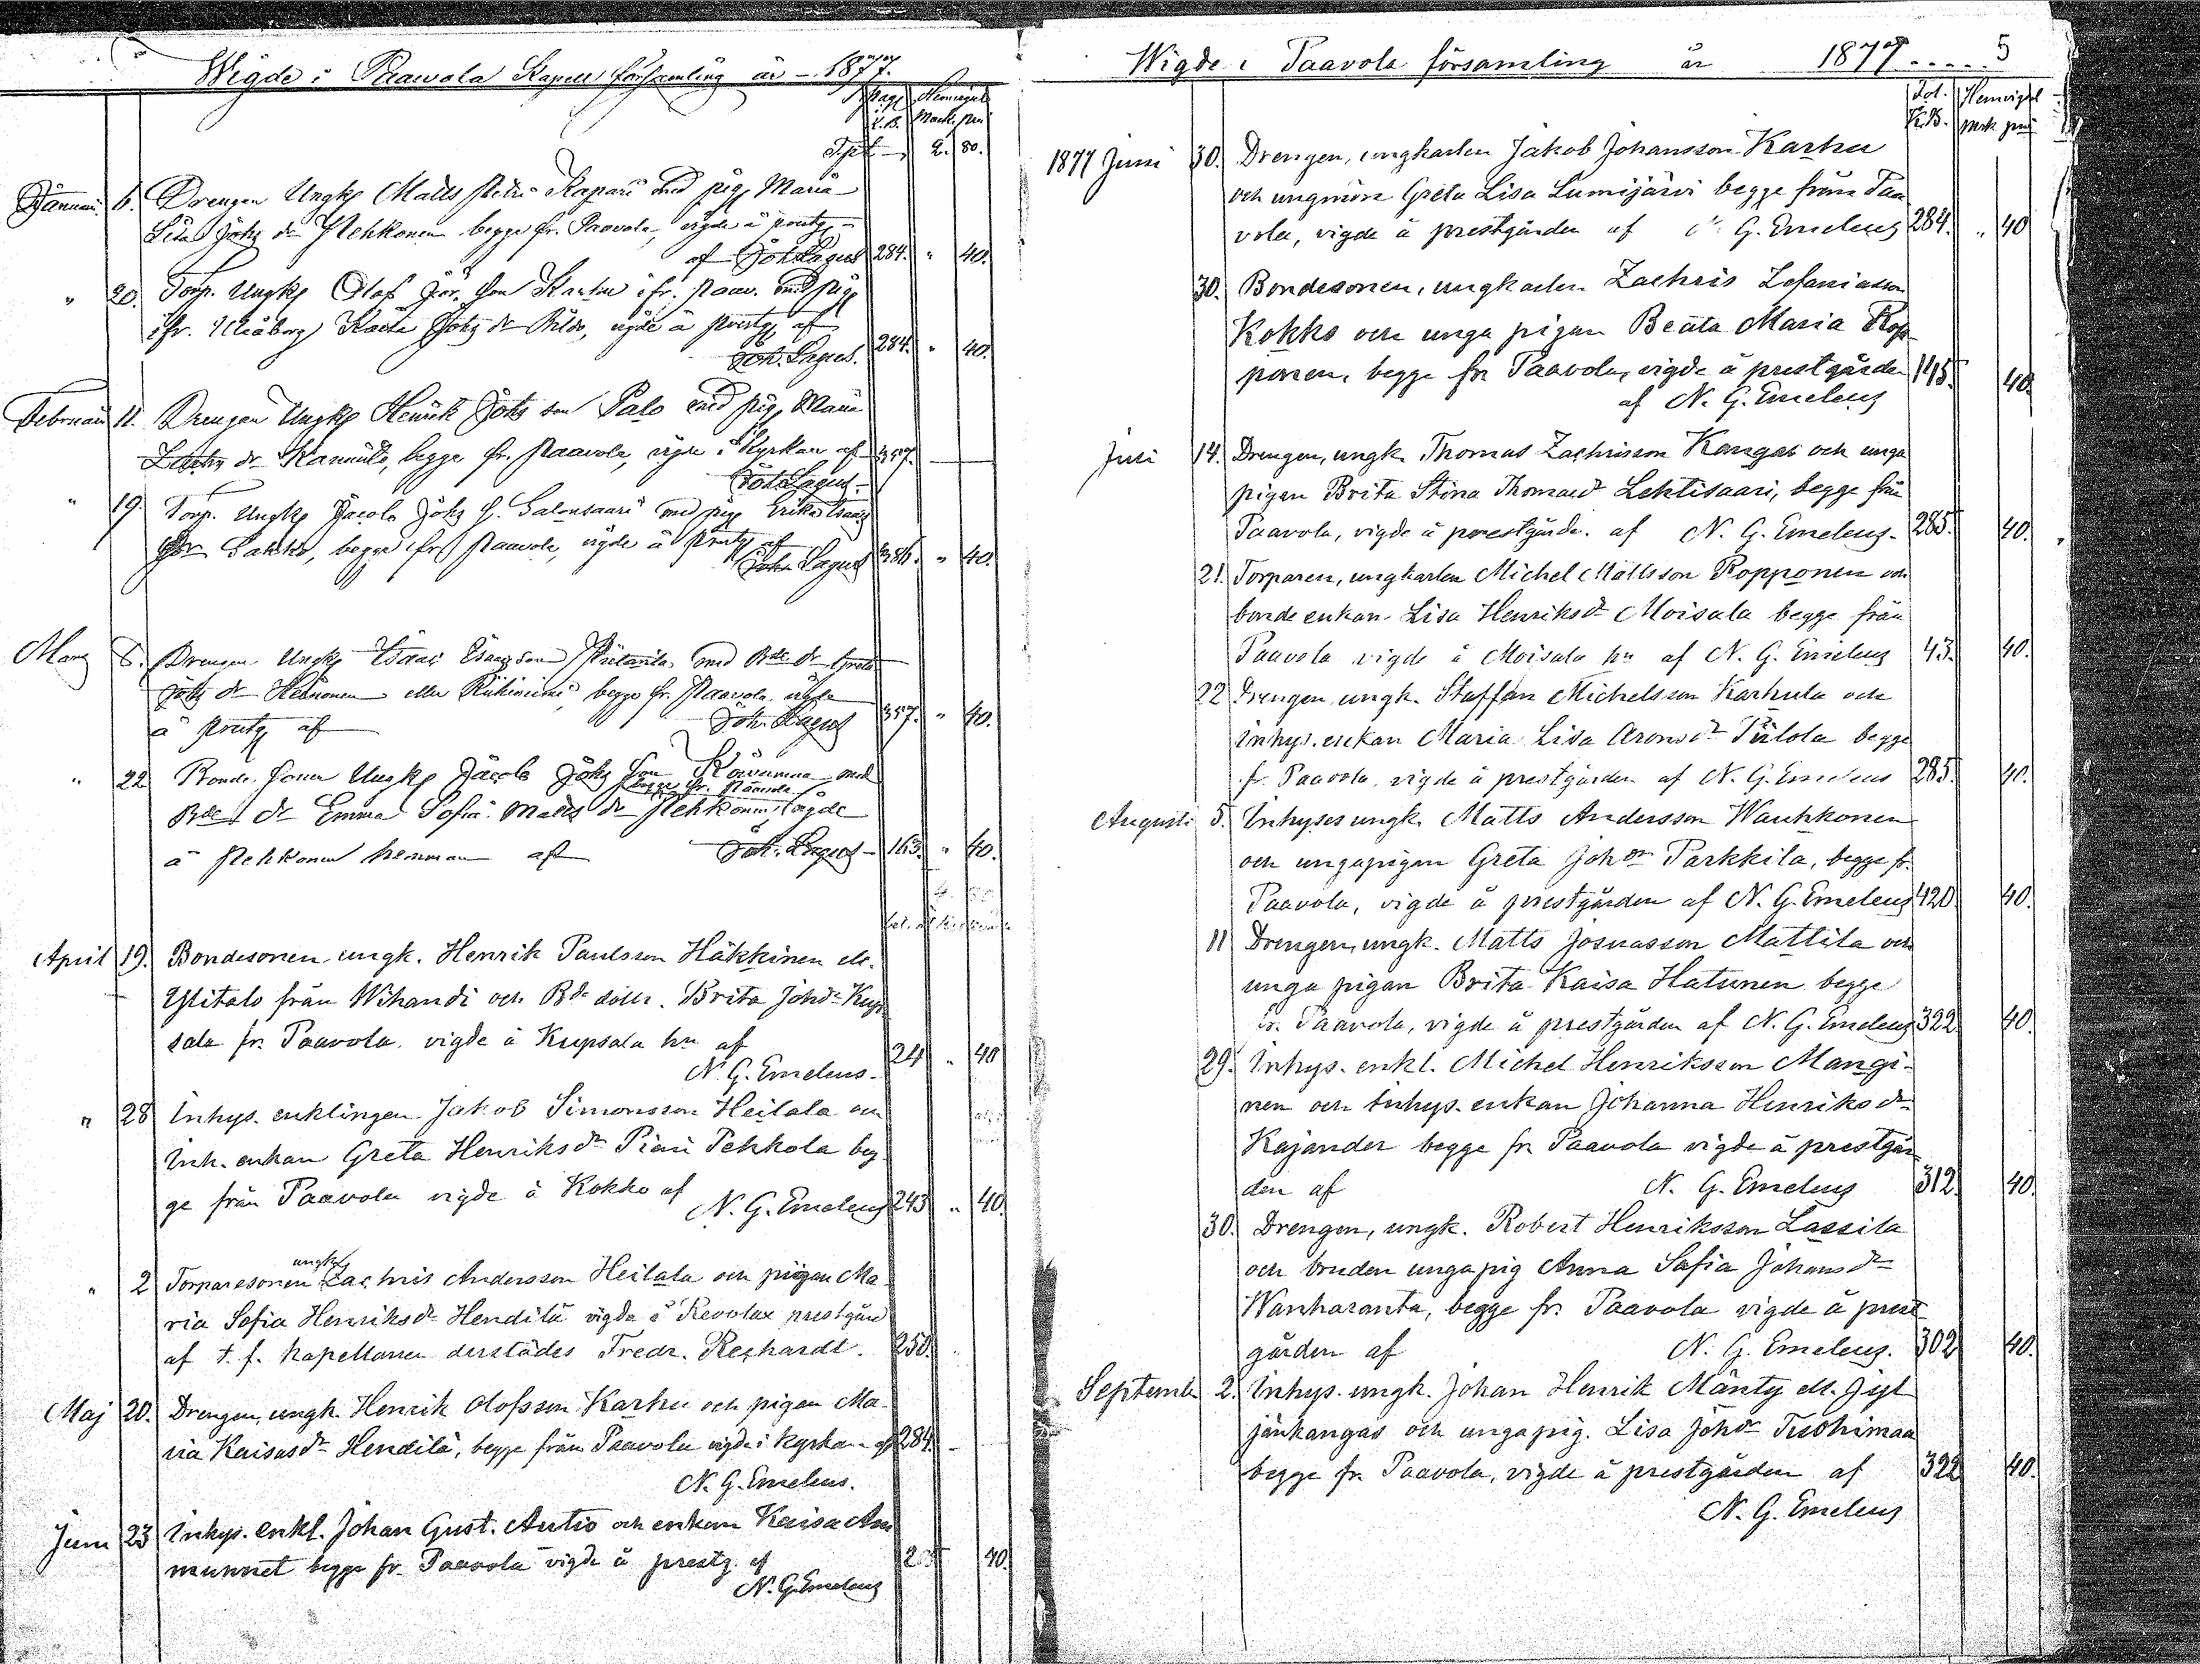 Wigde i Paavola Kapell församling år - 1877.
pag. i K.B. Hemvigsel Mark. pni
Tpt 2. 80.
Januari 6. Drengen Ungk. Matts Petri Kapari med pig. Maria
Lisa Joh. dr Pehkonen begge fr. Paavola, vigde å prestg.
af Joh. Lagus 284. " 40.
" 20. Torp. Ungk. Olof Jör. son Karhu ifr. Paav. med pig.
ifr. Uleåborg Kaisa Joh. dr vigde å prestg. af
Joh. Lagus. 284. " 40.
Februari 11. Drengen Ungk. Henrik Joh. son Palo med pig. Maria
dr begge fr. Paavola, vigde i Kyrkan af 357.
Joh. Lagus.
" 19. Torp. Ungk. Jacob Joh. s. Salonsaari med pig. Erika
begge ifr. Paavola, vigde å prestg. af
Joh. Lagus 386. " 40.
Mars 8. Drengen Ungk. Isaac Isaacsson Pietarila med Bde dr Greta
Joh. dr Heinonen eller Riihiniemi, begge fr. Paavola vigde
å prestg. af Joh. Lagus 357. " 40.
" 22 Bonde Sonen Ungk. Jacob Joh. Son med
begge fr. Paavola
Bde dr Emma Sofia Matts dr Pehkonen, vigde
å Pehkonen hemman af Joh. Lagus 163. " 40.
April 19. Bondesonen ungk. Henrik Paulsson Häkkinen ell.
Ylitalo från Wihandi och Bde dottr. Brita Johdr Kup
sala fr. Paavola. vigde å Kupsala hn af
N. G. Emeleus. 24 " 40
" 28 Inhys. enklingen Jakob Simonsson Heilala och
Inh. enkan Greta Henriksdr Piari Pekkola beg
ge från Paavola vigde å Kokko af
N. G. Emeleus 243 " 40.
ungk.
" 2 Torparesonen Zachris Andersson Heilala och pigan Ma
ria Sofia Henriksdr Hendilä vigde å Revolax prestgård
af t. f. kapellanen derstädes Fredr. Reshardt. 250.
Maj 20. Drengen, ungk. Henrik Olofsson Karhu och pigan Ma-
ria Kaisasdr Hendilä, begge från Paavola vigde i kyrkan af 284.
N. G. Emeleus.
Juni 23 Inhys. enkl. Johan Gust. Autio och enkan Kaisa Am
munnet begge fr. Paavola vigde å prestg. af 40.
N. G. Emeleus
Wigde i Paavola församling år 1877 ..... 5
Fol. K.B. Hemvigsel mrk pni
1877 Juni 30. Drengen, ungkarlen Jakob Johansson Karhu
och ungmön Greta Lisa Lumijärvi begge från Paa
vola, vigde å prestgården af N. G. Emeleus 284. " 40
30. Bondesonen, ungkarlen Zachris Zefaniasson
Kokko och unga pigan Beata Maria Rop
ponen, begge fr Paavola, vigde å prestgården 195. 40.
af N. G. Emeleus
Juli 14. Drengen, ungk. Thomas Zachrisson Kangas och unga
pigan Brita Stina Thomasdr Lehtisaari, begge från
Paavola, vigde å prestgårde. af N. G. Emeleus. 285. 40.
21. Torparen, ungkarlen Michel Mattsson Ropponen och
bonde enkan Lisa Henriksdr Moisala begge från
Paavola vigde å Moisala hn af N. G. Emeleus 43. 40.
22 Drengen ungk. Staffan Michelsson Karhula och
inhys. enkan Maria Lisa Aronsdr Piilola begge
fr. Paavola, vigde å prestgården af N. G. Emeleus 285. 40.
Augusti 5. Inhyses ungk. Matts Andersson Wanhkonen
och ungapigan Greta Johdr Parkkila, begge fr.
Paavola, vigde å prestgården af N. G. Emeleus 420. 40.
11 Drengen, ungk. Matts Josuasson Mattila och
unga pigan Brita Kaisa Hatunen begge
fr. Paavola, vigde å prestgården af N. G. Emeleus 322 40.
29. Inhys. enkl. Michel Henriksson Mangi-
nen och inhys. enkan Johanna Henriksdr
Kajander begge fr Paavola vigde å prestgår
den af N. G. Emeleus 312. 40.
30. Drengen, ungk. Robert Henriksson Lassila
och bruden ungapig Anna Sofia Johansdr
Wanharanta, begge fr. Paavola vigde å prest
gården af N. G. Emeleus. 302 40.
Septemb 2. Inhys. ungk. Johan Henrik Mänty ell. Jyl
jänkangas och ungapig. Lisa Johdr Tuohimaa
begge fr Paavola, vigde å prestgården af 322 40.
N. G. Emeleus